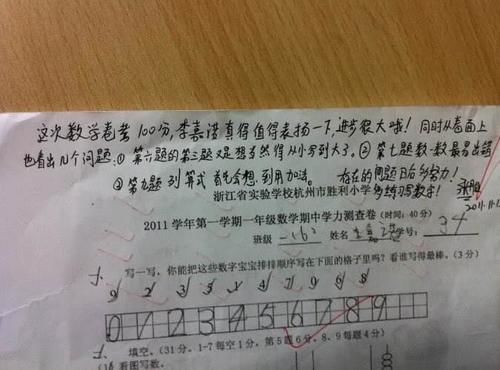 这次数学卷考100分,李嘉浩真得值得表扬一下,进步很大哦!同时从卷面上
也看出几个问题:①第六题的第三题又是想当然得从小写到大了。②第七题数数最易出错
③第九题列算式首先会想到用加法。存在的问题日后努力!
浙江省实验学校杭州市胜利小学 多练习写数字!
2011.11.
2011学年第一学期一年级数学期中学力测查卷(时间:40分)
班级 一(6) 姓名 学号: 34
一、写一写,你能把这些数字宝宝排排顺序写在下面的格子里吗?看谁写得最棒。(3分)
0 1 2 3 4 5 6 7 8 9
二、填空。(31分,1-7每空1分,第5题6分,8、9每题4分)
(1)看图写数。